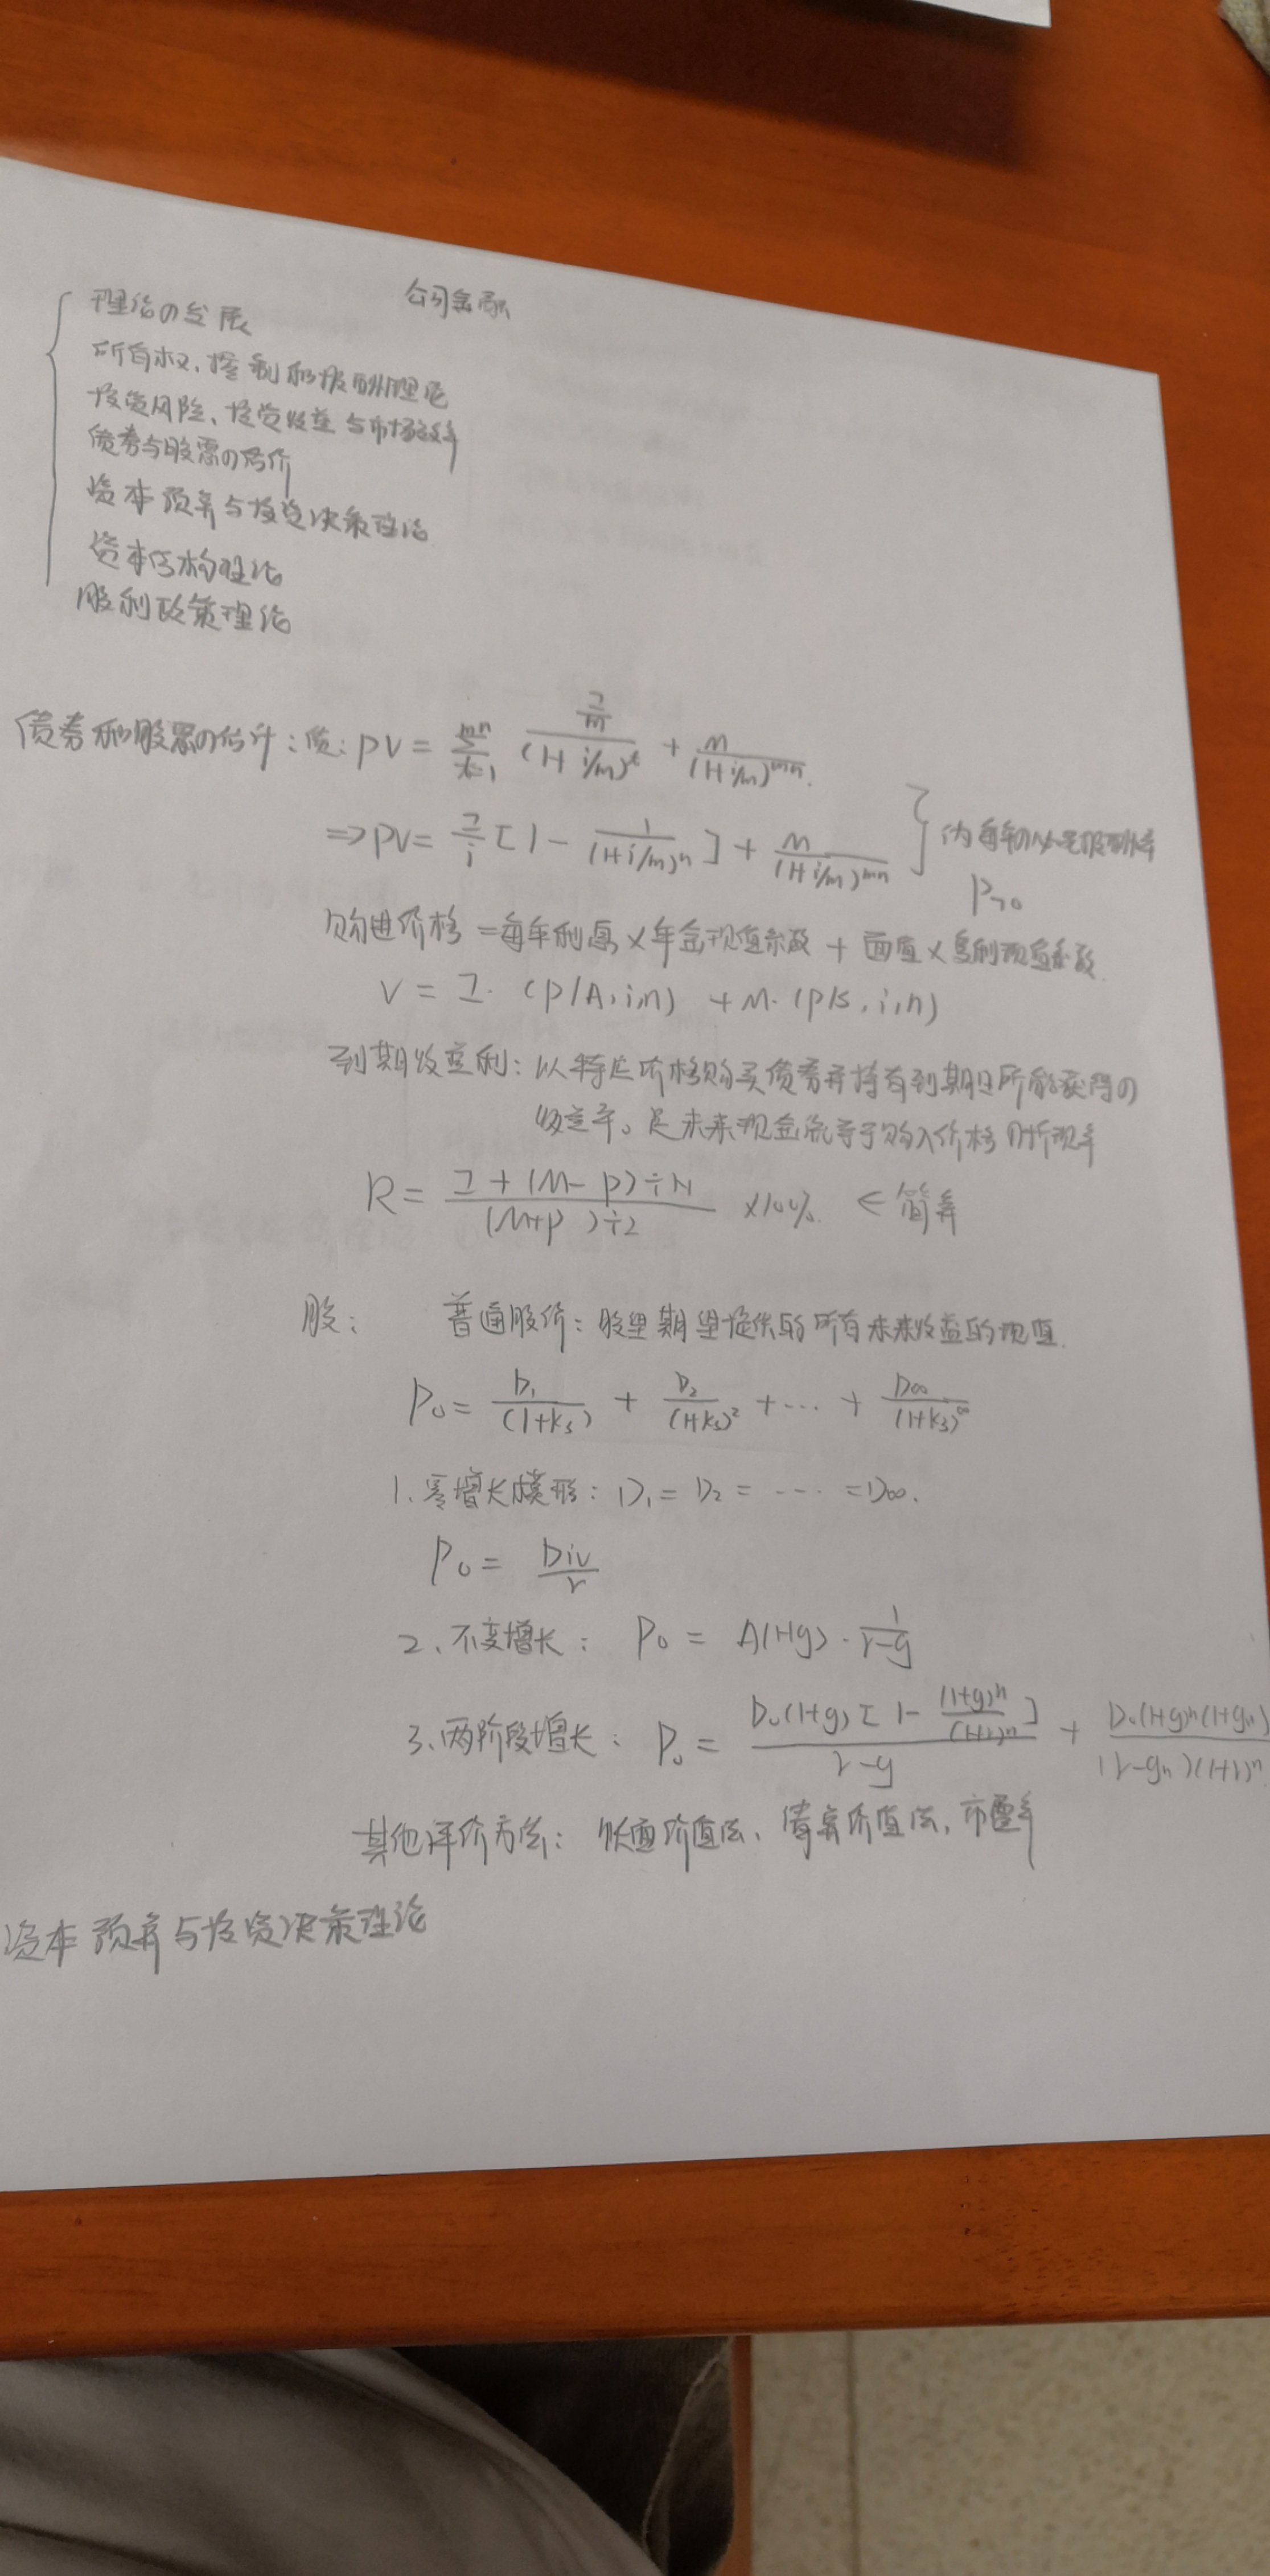 公司金融
理论の发展
所有权、控制和报酬理论
投资风险、投资收益与市场效率
债券与股票の估价
资本预算与投资决策理论
资本结构理论
股利政策理论
债券和股票の估计:债: PV = \sum_{t=1}^{mn} \frac{\frac{I}{m}}{(1+i/m)^t} + \frac{M}{(1+i/m)^{mn}}
⇒ PV = \frac{I}{i} [1 - \frac{1}{(1+i/m)^n}] + \frac{M}{(1+i/m)^{mn}}
购进价格 = 每年利息 × 年金现值系数 + 面值 × 复利现值系数.
V = I· (P/A, i, n) + M· (P/S, i, n)
到期收益利: 以特定价格购买债券并持有到期日所能获得の
收益率。是未来现金流等于购入价格の折现率
R = \frac{I + (M - P) ÷ N}{(M+P) ÷ 2} ×100%. ← 简算
股: 普通股价: 股 期望提供的所有未来收益的现值.
P_0 = \frac{D_1}{(1+K_s)} + \frac{D_2}{(1+K_s)^2} + ··· + \frac{D∞}{(1+K_s)^∞}
1. 零增长模形: D_1 = D_2 = ···· = D∞.
P_0 = \frac{Div}{r}
2、不变增长: P_0 = A(1+g) · \frac{1}{r-g}
3、两阶段增长: P_0 = \frac{D_0(1+g) [1 - \frac{(1+g)^n}{(1+r)^n}]}{r-g} + \frac{D_0(1+g)^n(1+g_n)}{(r-g_n)(1+r)^n}
其他评价方法: 账面价值法、清算价值法, 市盈率
资本预算与投资决策理论